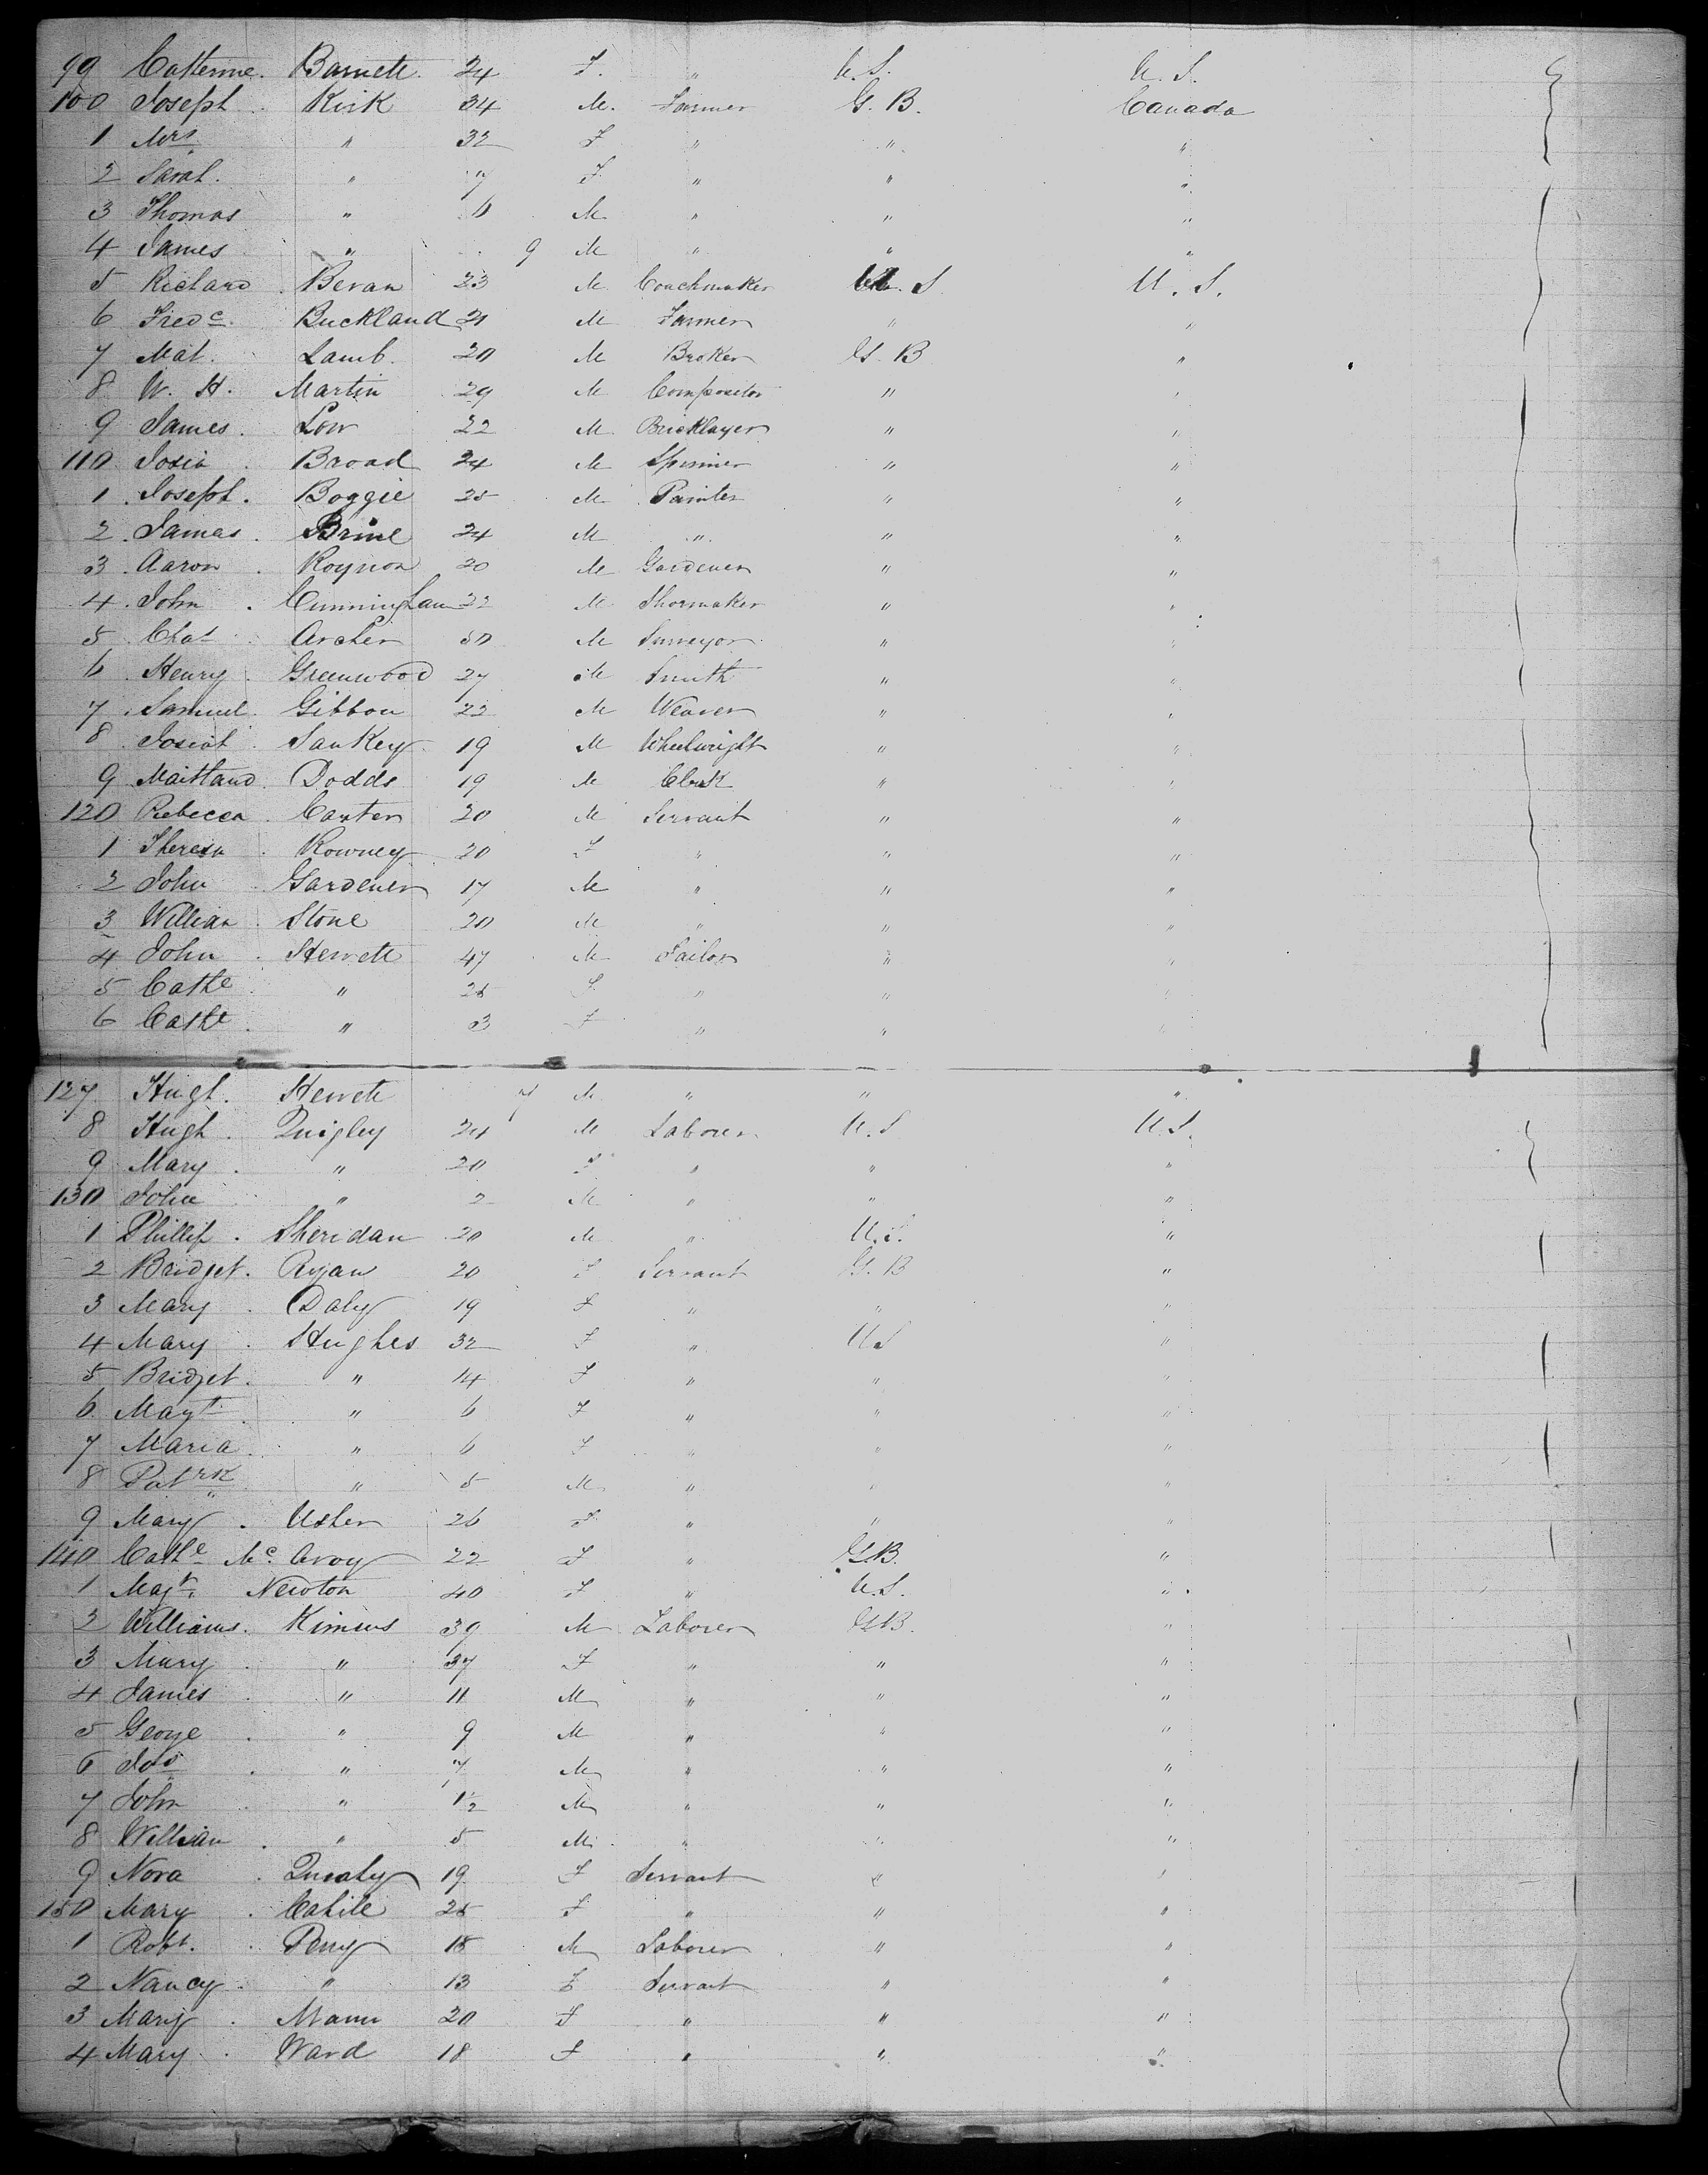 99 Catherine. Barnett. 24 F. " U.S. U.S.
100 Joseph. Kirk 34 M. Farmer G.B. Canada
1 Mrs " 32 F " " "
2 Sarah. " 7 F " " "
3 Thomas " 6 M " " "
4 James " 9 M " " "
5 Richard. Bevan 23 M Coachmaker U.S U.S.
6 Fredc. Buckland 21 M Farmer " "
7 Mat. Lamb. 20 M Broker G.B "
8 W. H. Martin 29 M Compositor " "
9 James. Low 22 M. Bricklayer " "
110 Josia. Broad 24 M Spinner " "
1 Joseph. Boggie 25 M Painter " "
2 James. Brine 24 M " " "
3 Aaron. Roynon 20 M Gardener " "
4 John. Cunningham 22 M Shoemaker " "
5 Chas. Archer 50 M Surveyor " "
6 Henry. Greenwood 27 M Smith " "
7 Samuel. Gibbon 22 M Weaver " "
8 Josiah. Sankey. 19 M Wheelwright " "
9 Maitland. Dodds 19 M Clerk " "
120 Rebecca. Carter 20 M Servant " "
1 Theresa. Rowney 20 F " " "
2 John. Gardener 17 M " " "
3 William. Stone 20 M " " "
4 John. Hewett 47 M Tailor " "
5 Cathe. " 26 F " " "
6 Cathe. " 3 F " " "
127 Hugh. Hewett 7 M " " "
8 Hugh. Quigley 24 M Laborer U.S U.S.
9 Mary. " 20 F " " "
130 John " 2 M " " "
1 Phillip. Sheridan 20 M " U.S. "
2 Bridget. Ryan 20 F Servant G.B "
3 Mary. Daly 19 F " " "
4 Mary. Hughes 32 F " U.S "
5 Bridget. " 14 F " " "
6 Magt. " 6 F " " "
7 Maria. " 6 F " " "
8 Patrk " 5 M " " "
9 Mary. Usher 26 F " " "
140 Cathe Mc. Avoy 22 F " G.B. "
1 Magt. Newton 40 F " U.S. "
2 Williams. Kimins 39 M Laborer G.B. "
3 Mary. " 37 F " " "
4 James. " 11 M " " "
5 George. " 9 M " " "
6 Jos. " 7 M " " "
7 John " 1½ M " " "
8 William. " 5 M " " "
9 Nora. Quealy 19 F Servant " "
150 Mary. Cahile 25 F " " "
1 Robt. Perry 15 M Laborer " "
2 Nancy. " 13 F Servant " "
3 Mary. Mann 20 F " " "
4 Mary. Ward 18 F " " "